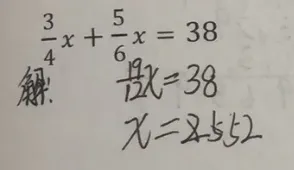 3/4 x + 5/6 x = 38
解: 19/12 x = 38
x = 2552